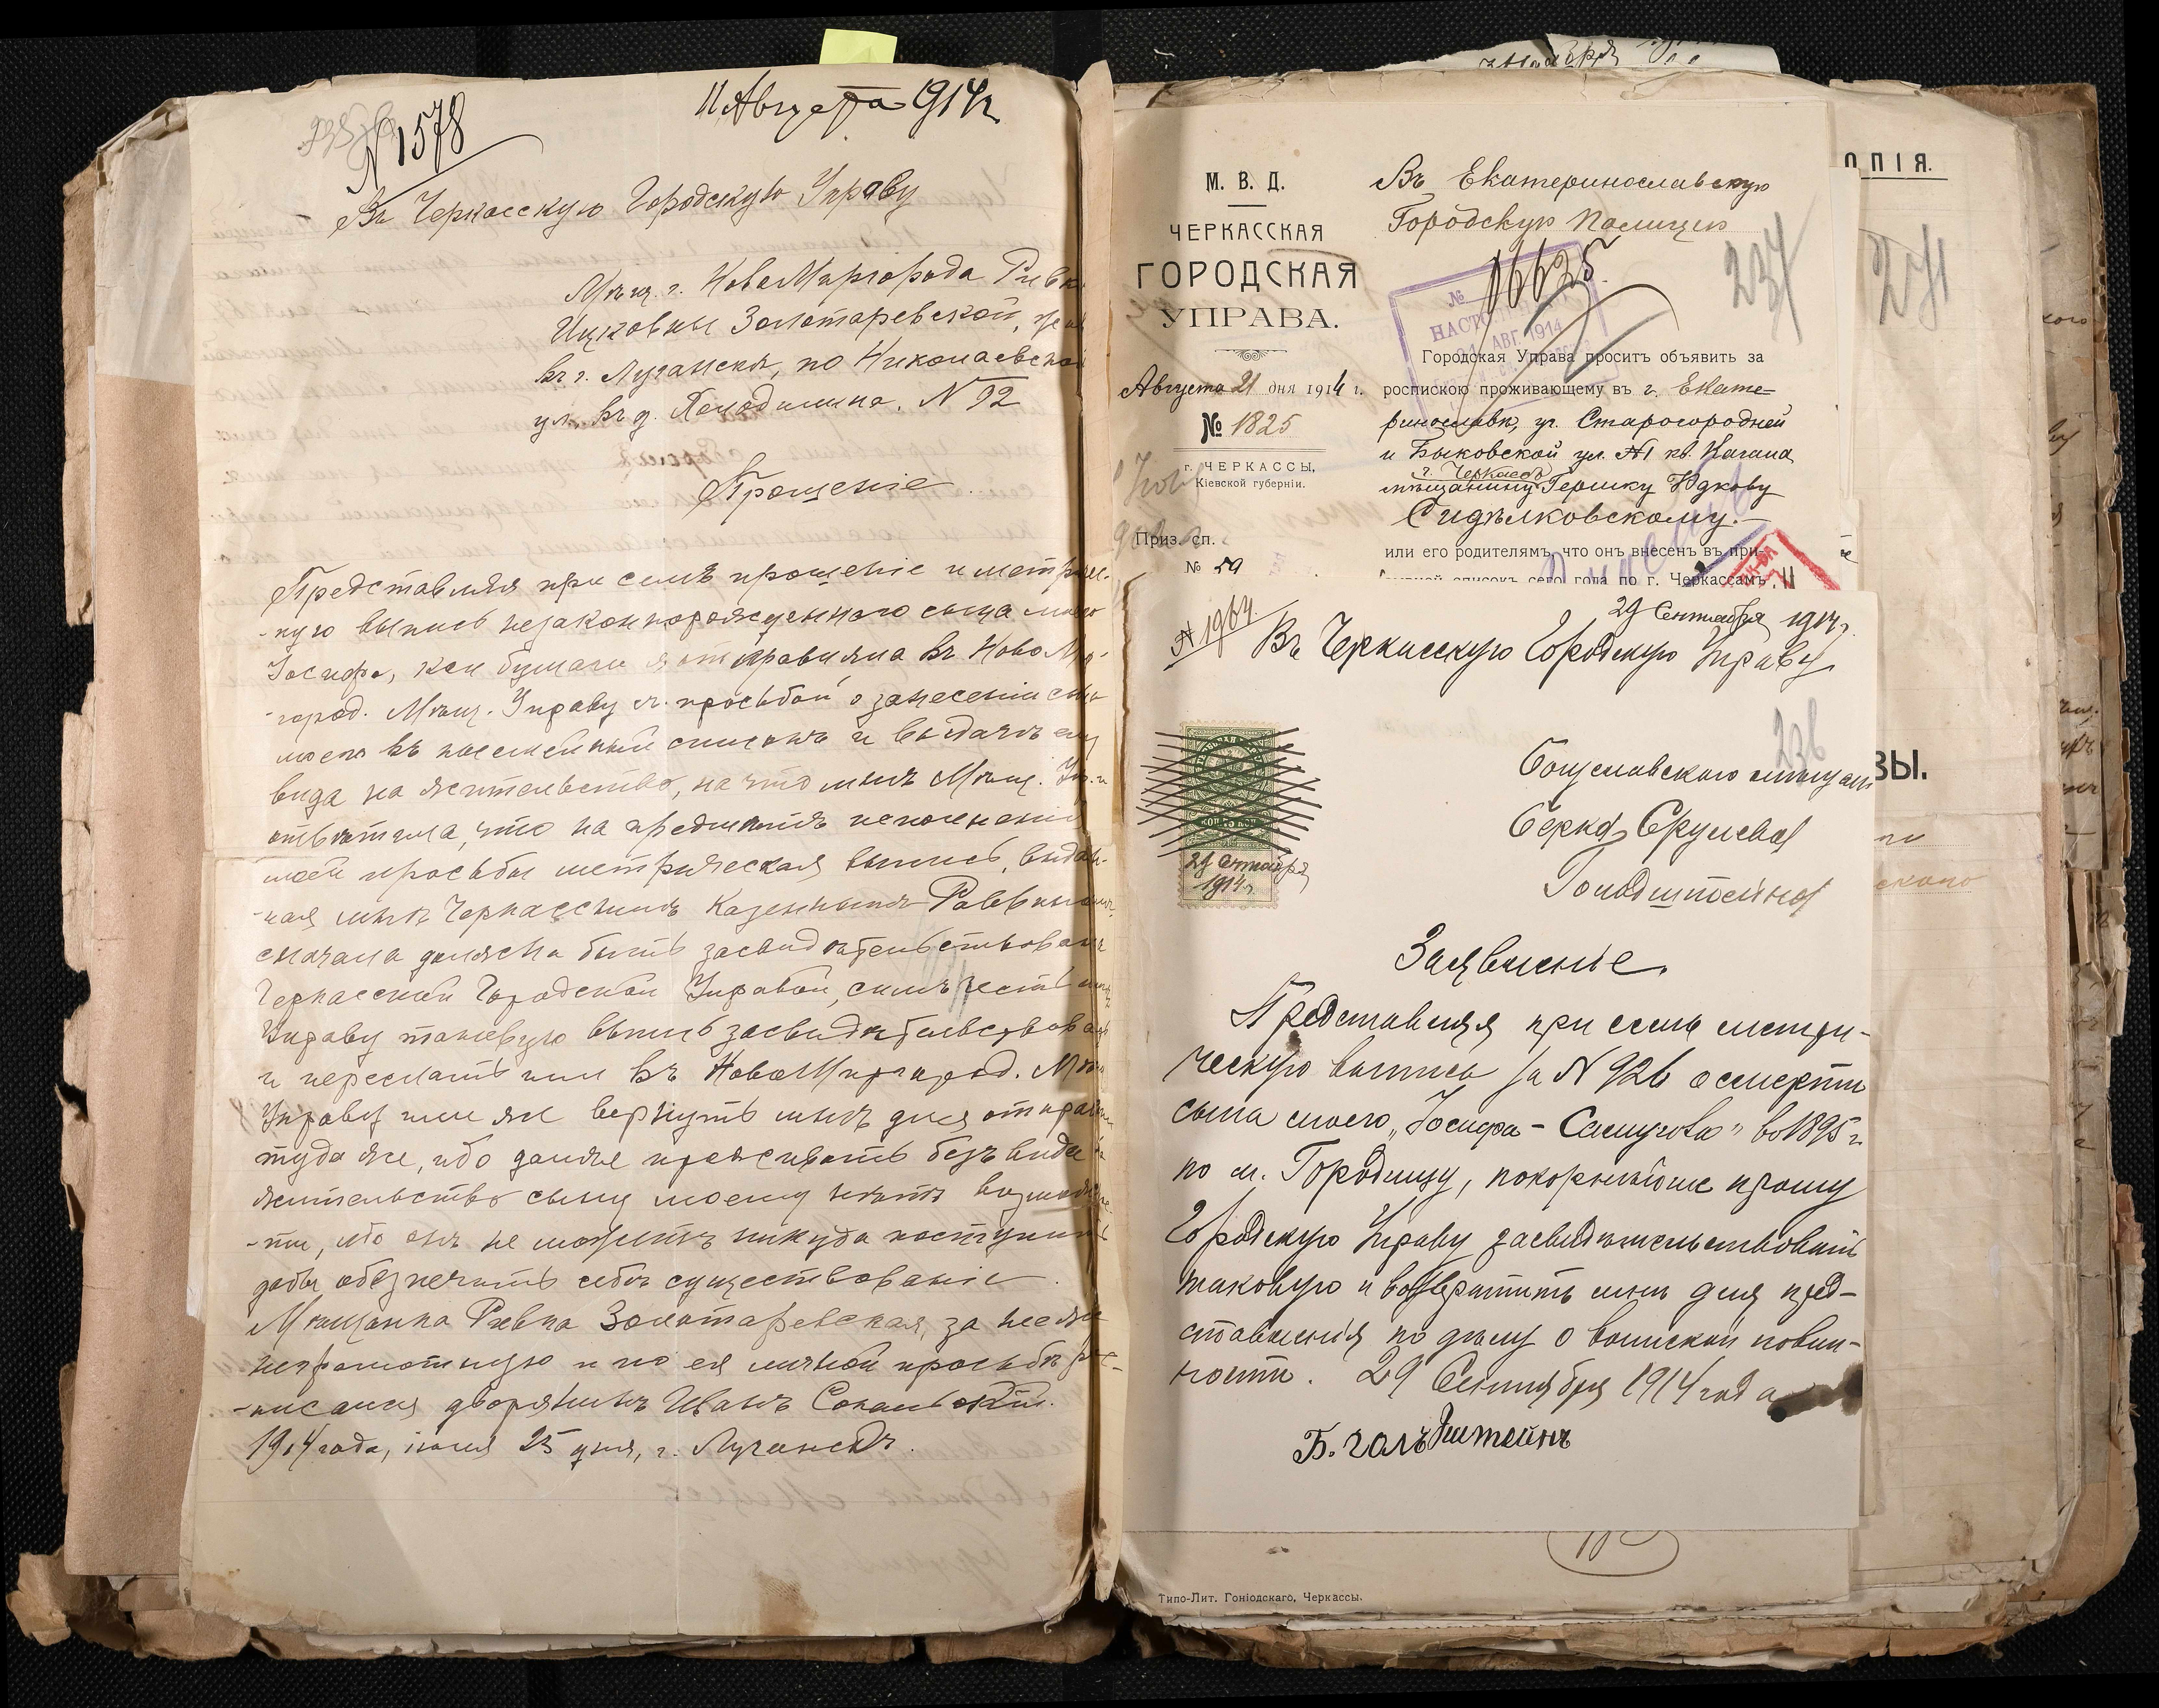 № 1578
11 Августа 1914 г.
Въ Черкасскую Городскую Управу
Мѣщ. г. НовоМиргорода Ривки
Ицковны Золотаревской,
въ г. Луганскѣ, по Николаевской
ул. въ д. № 92
Прошеніе.
Представляя при семъ прошеніе и метриче-
-ную выпись незаконнорожденнаго сына моего
Іосифа, кои бумаги я отправляла въ НовоМир-
-город. Мѣщ. Управу съ просьбой о занесеніи сына
моего въ посемейный списокъ и выдачѣ ему
вида на жительство, на что мнѣ Мѣщ. Упр.
отвѣтила, что на предметъ исполненія
моей просьбы метрическая выпись, выдан-
-ная мнѣ Черкасскимъ Казеннымъ Раввиномъ
сначала должна быть засвидѣтельствована
Черкасской Городской Управой, симъ
Управу таковую выпись засвидѣтельствовать
и переслать или въ НовоМиргород. Мѣщ.
Управу или же вернуть мнѣ для отправки
туда же, ибо далѣе проживать безъ вида на
жительство сыну моему нѣтъ возможнос-
-ти, ибо онъ не можетъ никуда поступить
дабы обезпечить себѣ существованіе.
Мѣщанка Ривка Золотаревская, за нее же
неграмотную и по ея личной просьбѣ рос-
-писался дворянинъ Иванъ
1914 года, іюля 25 дня, г. Луганскъ.
М. В. Д.
ЧЕРКАССКАЯ
ГОРОДСКАЯ
УПРАВА.
Августа 21 дня 1914 г.
№ 1825
г. ЧЕРКАССЫ,
Кіевской губерніи.
Приз. сп.
№ 59
Въ Екатеринославскую
Городскую Полицію
16625
№
АВГ. 1914
237
Городская Управа проситъ объявить за
роспискою проживающему въ г. Екате-
ринославѣ, уг. Старогородней
и Быковской ул. №1 кв. Кагана
г. Черкассъ
мѣщанину Гершку Юдкову
Сидѣлковскому.
или его родителямъ, что онъ внесенъ въ при-
списокъ сего года по г. Черкассамъ
ОПІЯ.
271
ВЫ.
№ 1964.
29 Сентября 1914 г.
Въ Черкасскую Городскую Управу
236
Богуславскаго мѣщан
Берка Сруліева
Гольдштейна
29 Сентября
1914 г.
Заявленіе.
Представляя при семъ метри-
ческую выпись за № 926 о смерти
сына моего „Іосифа – " въ 1895 г.
по м. Городищу, покорнѣйше прошу
Городскую Управу засвидѣтельствовать
таковую и возвратить мнѣ для пред-
ставленія по дѣлу о воинской повин-
ности. 29 Сентября 1914 года
Б. голъдштейнъ
Типо-Лит. Гоніодскаго, Черкассы.